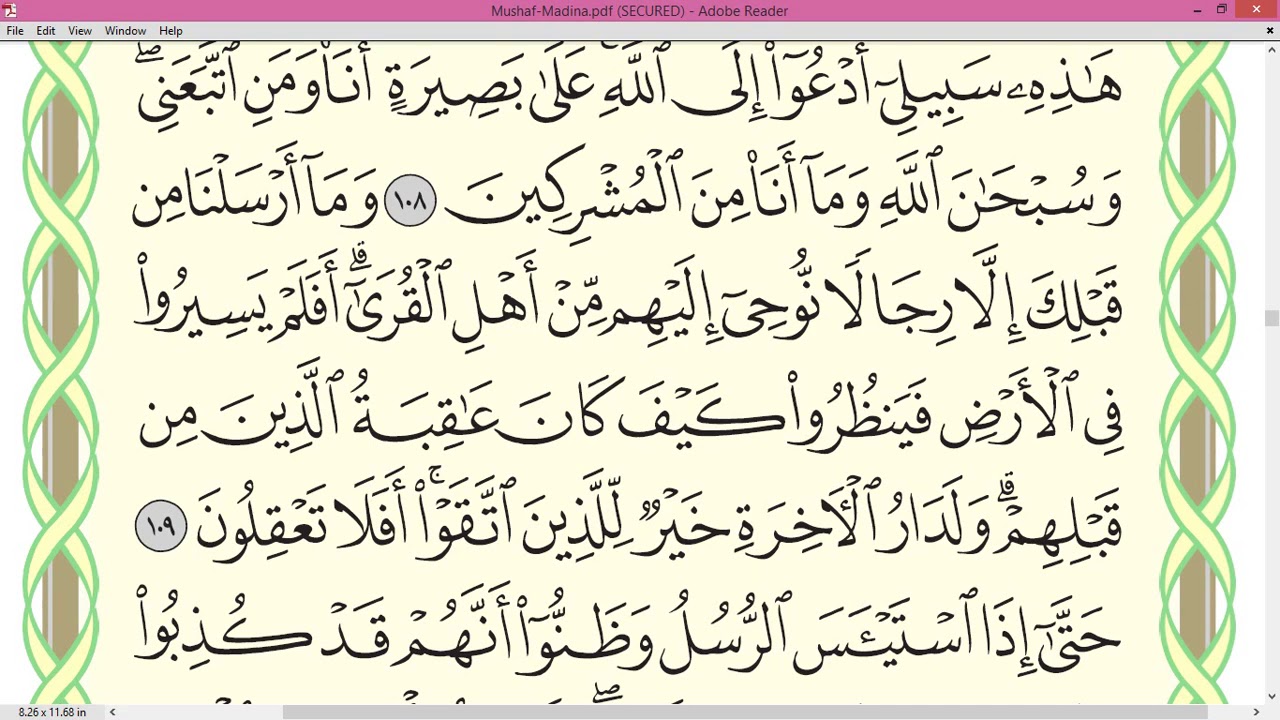 Mushaf-Madina.pdf (SECURED) - Adobe Reader
File Edit View Window Help
هَٰذِهِۦ سَبِيلِىٓ أَدْعُوٓا۟ إِلَى ٱللَّهِ عَلَىٰ بَصِيرَةٍ أَنَا۠ وَمَنِ ٱتَّبَعَنِى ۖ
وَسُبْحَٰنَ ٱللَّهِ وَمَآ أَنَا۠ مِنَ ٱلْمُشْرِكِينَ ١٠٨ وَمَآ أَرْسَلْنَا مِن
قَبْلِكَ إِلَّا رِجَالًا نُّوحِىٓ إِلَيْهِم مِّنْ أَهْلِ ٱلْقُرَىٰٓ ۗ أَفَلَمْ يَسِيرُوا۟
فِى ٱلْأَرْضِ فَيَنظُرُوا۟ كَيْفَ كَانَ عَٰقِبَةُ ٱلَّذِينَ مِن
قَبْلِهِمْ ۗ وَلَدَارُ ٱلْءَاخِرَةِ خَيْرٌ لِّلَّذِينَ ٱتَّقَوْا۟ ۚ أَفَلَا تَعْقِلُونَ ١٠٩
حَتَّىٰٓ إِذَا ٱسْتَيْـَٔسَ ٱلرُّسُلُ وَظَنُّوٓا۟ أَنَّهُمْ قَدْ كُذِبُوا۟
8.26 x 11.68 in